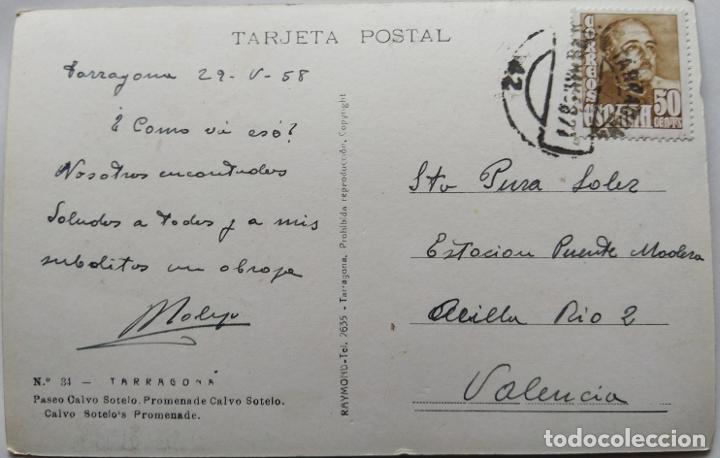 TARJETA POSTAL
Tarragona 29-V-58
¿ Como va eso?
Nosotros encantados
Saludos a todos y a mis
subditos un
Nº 34 — TARRAGONA
Paseo Calvo Sotelo. Promenade Calvo Sotelo.
Calvo Sotelo's Promenade.
RAYMOND-Tel. 2635 - Tarragona, Prohibida reproducción, Copyright
42
CORREOS
ESPAÑA
50
CENTS
Sta Pura Soler
Estacion Puente Madera
Orilla Rio 2
Valencia
todocoleccion
todocoleccion.net